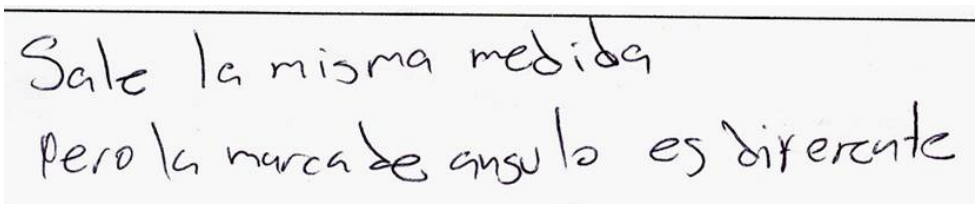 Sale la misma medida
Pero la marca de angulo es diferente